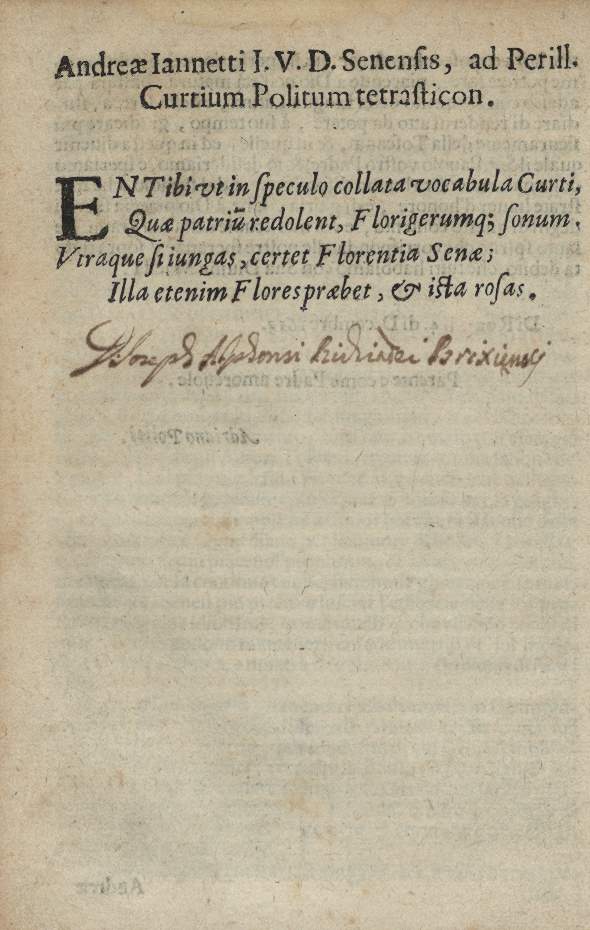 Andreæ Iannetti I. V. D. Senensis, ad Perill.
Curtium Politum tetrasticon.
EN Tibi vt in speculo collata vocabula Curti,
Quæ patriũ redolent, Florigerumq; sonum.
Vtraque si iungas, certet Florentia Senæ;
Illa etenim Flores præbet, & ista rosas.
Joseph Alphonsi Brixiensis
Adriano Politi.
Andreæ